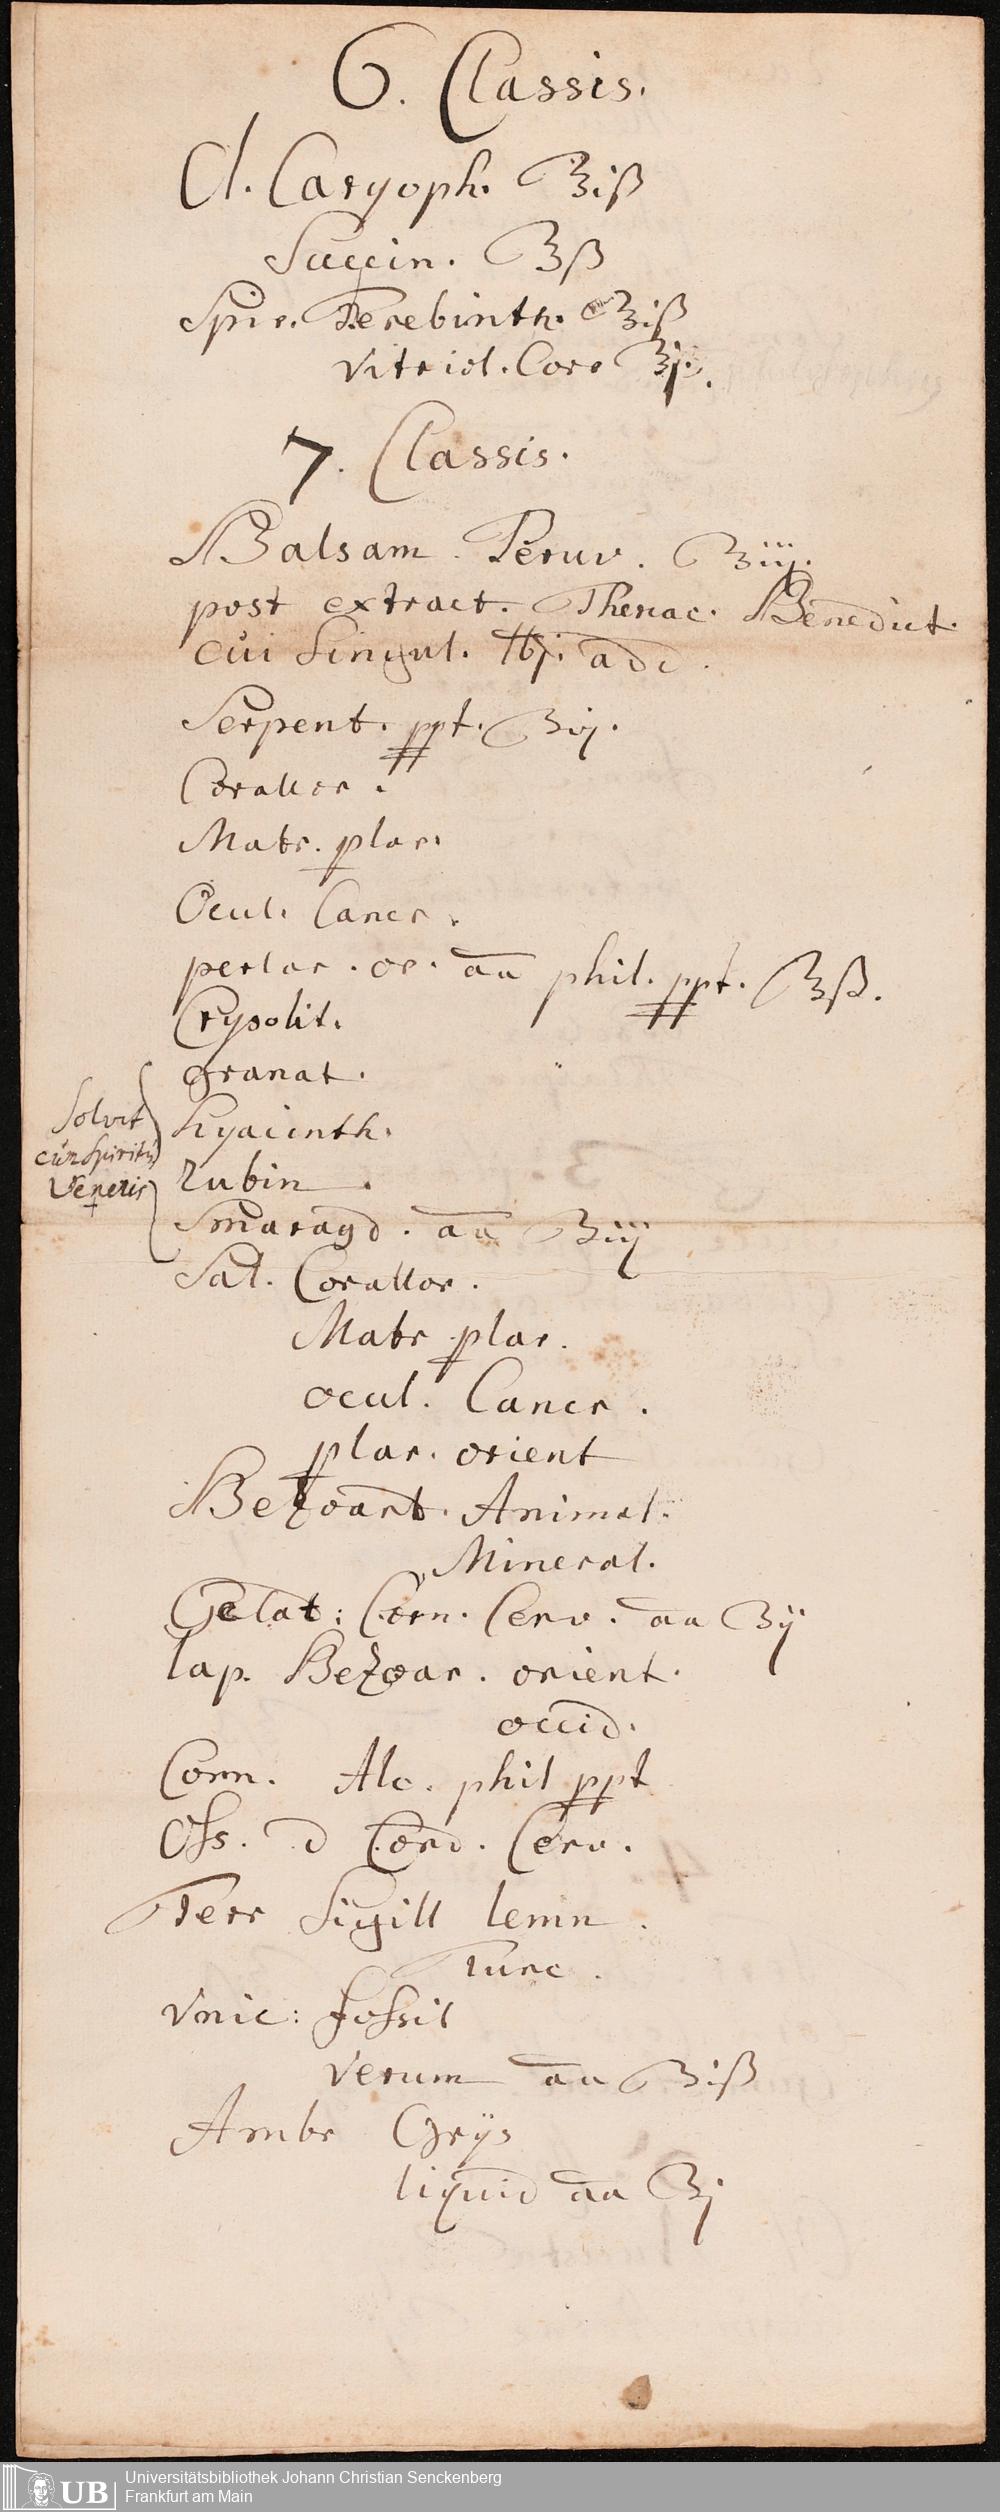 6. Classis.
Ol. Caryoph. ʒiß
Succin. ʒß
Spir. Terebinth. ʒiß
Vitriol. Corr ʒj.
7. Classis.
Balsam. Peruv. ʒiij.
post extract. Theriac. Benedict.
cui Singul. ℔j. add.
Serpent. ppt. ʒij.
Corallor.
Matr. plar.
Ocul. Cancr.
perlar. or. aa phil. ppt. ʒß.
Crysolit.
granat.
Solvit
cum Spiritu
Veneris
hyacinth.
rubin.
Smaragd. aa ʒiij
Sal. Corallor.
Matr plar.
ocul. Cancr.
plar. orient
Bezoart. Animal.
Mineral.
Gelat: Corn. Cerv. aa ʒij
lap. Bezoar. orient.
occid.
Corn. Alc. phil ppt
Oss. d Cord. Cerv.
Terr Sigill lemn.
Turc.
Vnic: fossil
verum aa ʒiß
Ambr Grys
liquid aa ʒj
UB
Universitätsbibliothek Johann Christian Senckenberg
Frankfurt am Main